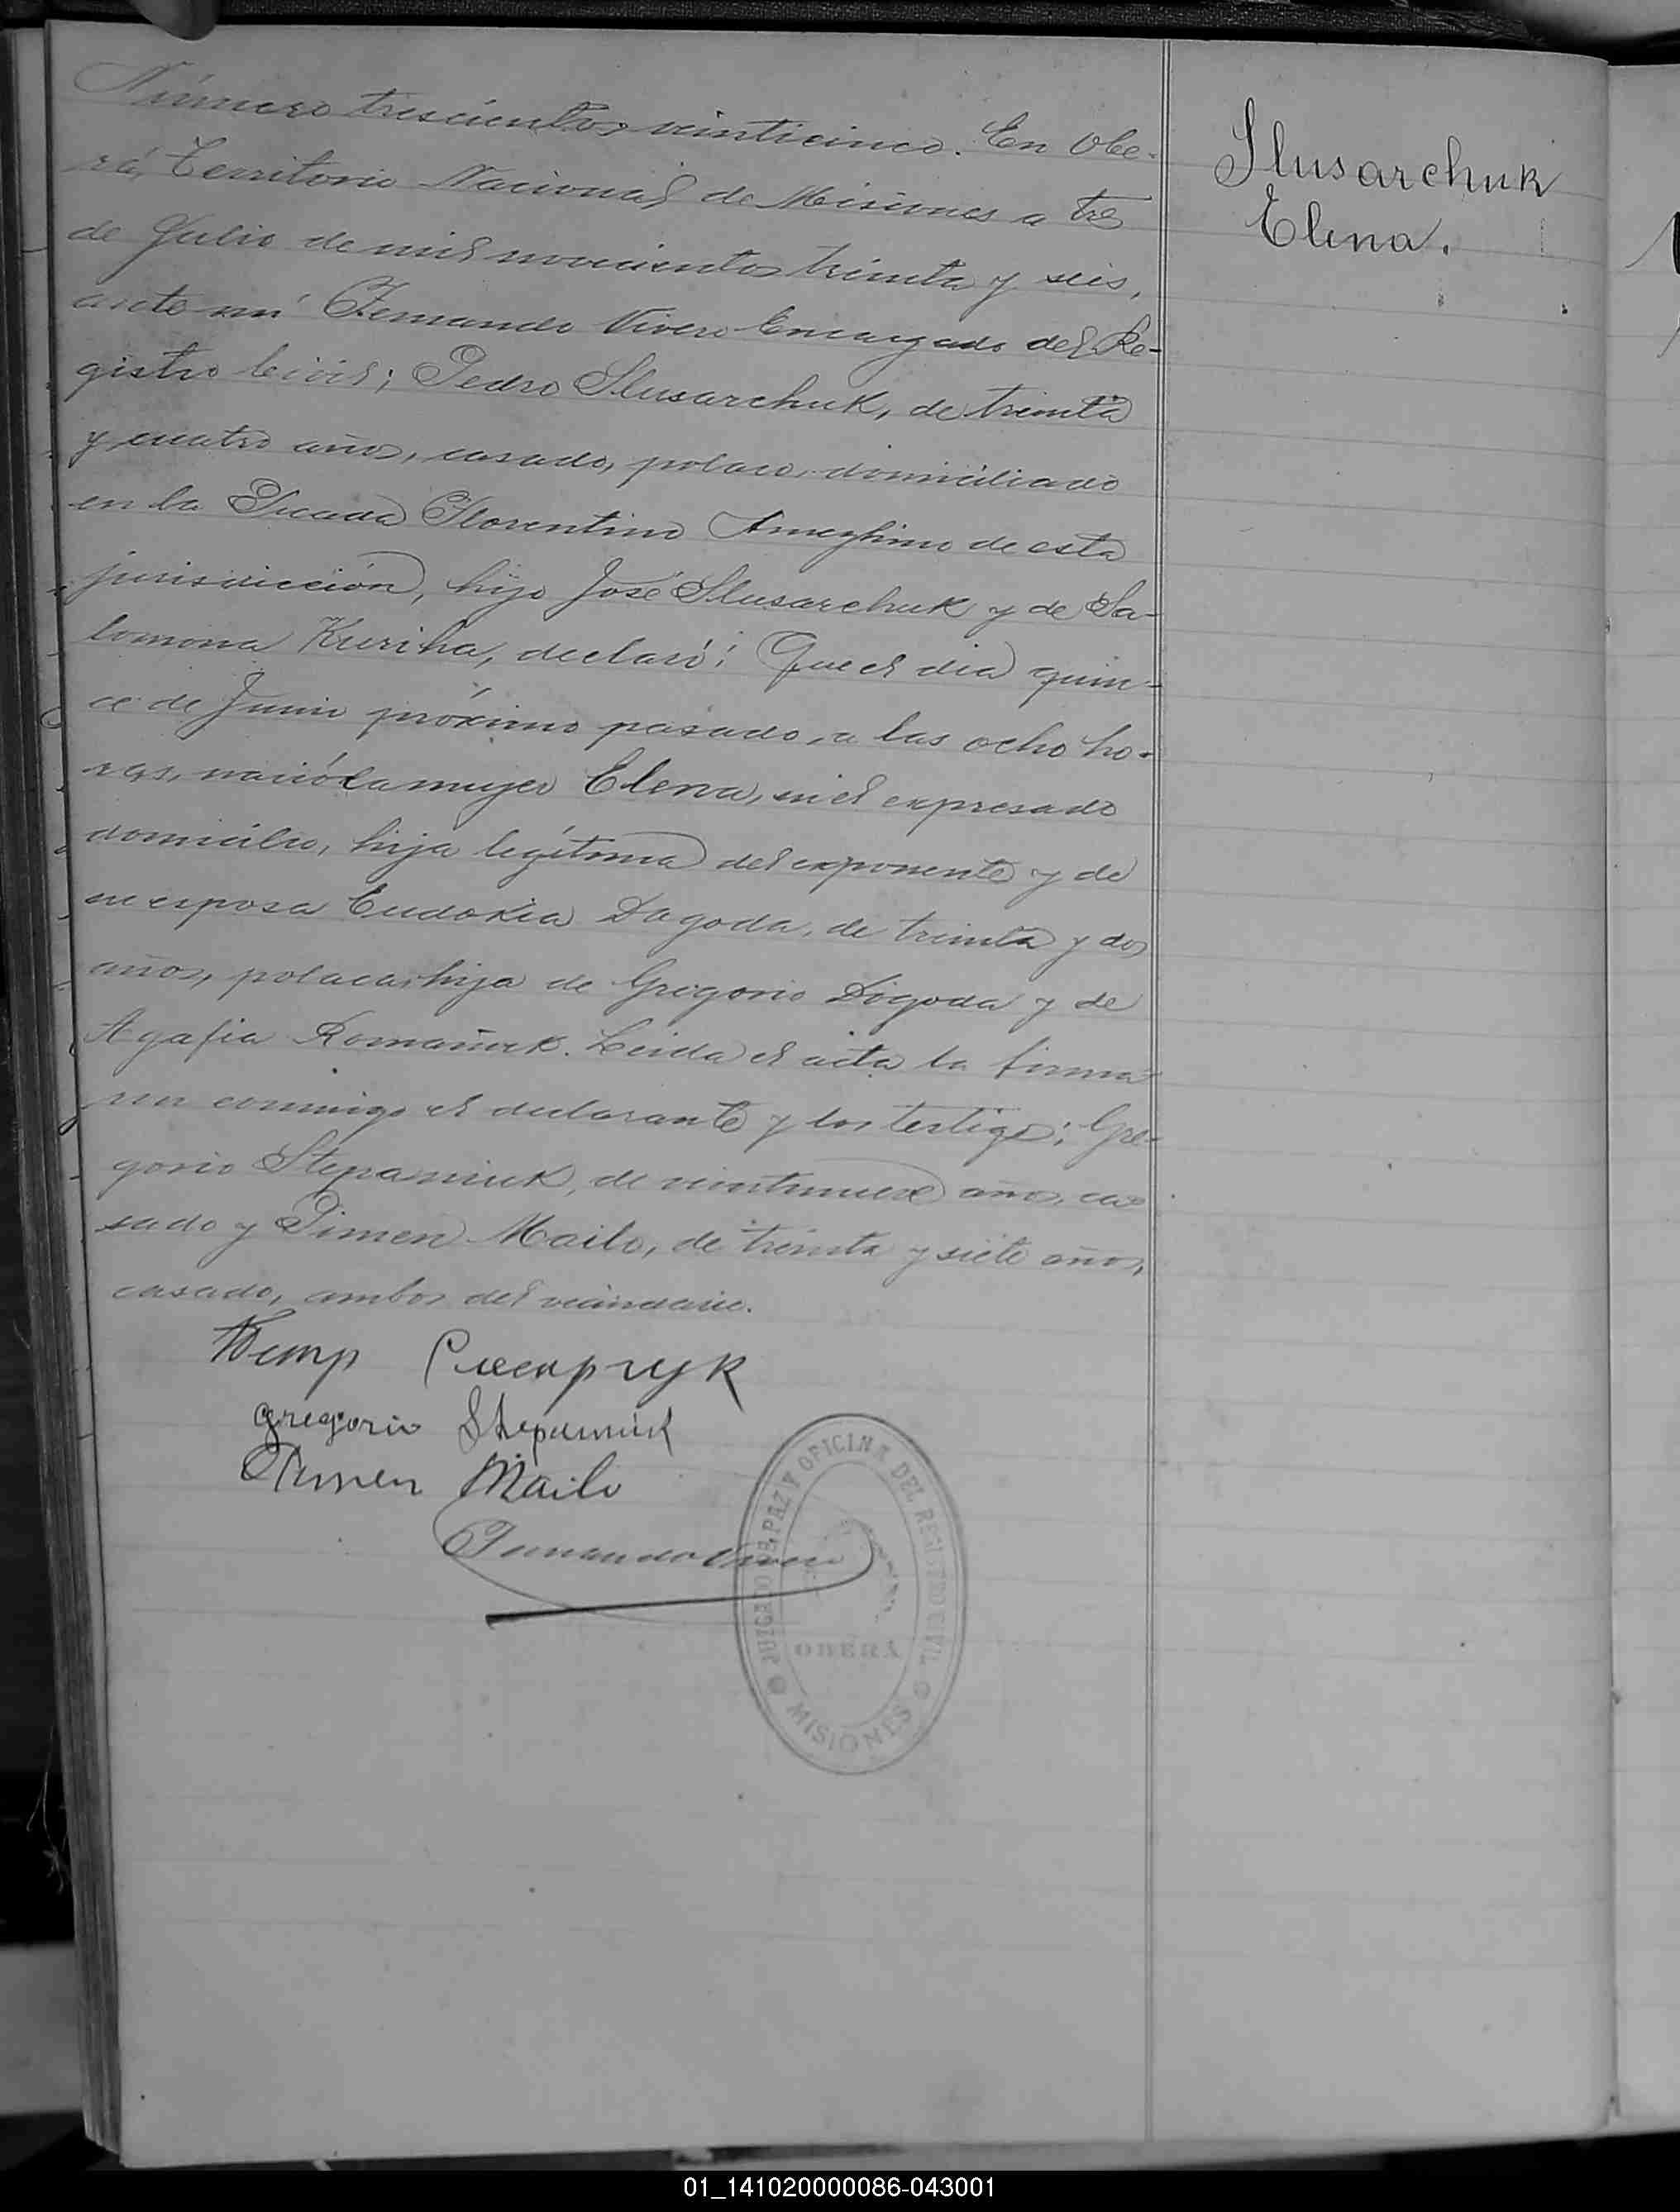 Número trescientos veinticinco. En Obe-
rá, Territorio Nacional de Misiones a tres
de Julio de mil novecientos treinta y seis,
ante mí Fernando Vivero Encargado del Re-
gistro Civil; Pedro Slusarchuk, de treinta
y cuatro años, casado, polaco, domiciliado
en la Picada Florentino Ameghino de esta
jurisdicción, hijo José Slusarchuk y de Sa-
lomona Kuriha, declaró: Que el día quin-
ce de Junio próximo pasado, a las ocho ho-
ras, nació la mujer Elena, en el expresado
domicilio, hija legítima del exponente y de
su esposa Eudokia Dagoda, de treinta y dos
años, polaca, hija de Gregorio Dogoda y de
Agafia Romañuk. Leida el acta la firma
ron conmigo el declarante y los testigos; Gre-
gorio Stepaniuk, de veintinueve años, ca
sado y Pimen Mailo, de treinta y siete años,
casado, ambos del vecindario.
Gregorio Stepaniuk
Pimen Mailo
Fernando Vivero
Slusarchuk
Elena.
JUZGADO DE PAZ Y OFICINA DEL REGISTRO CIVIL
OBERÁ
MISIONES
01_141020000086-043001